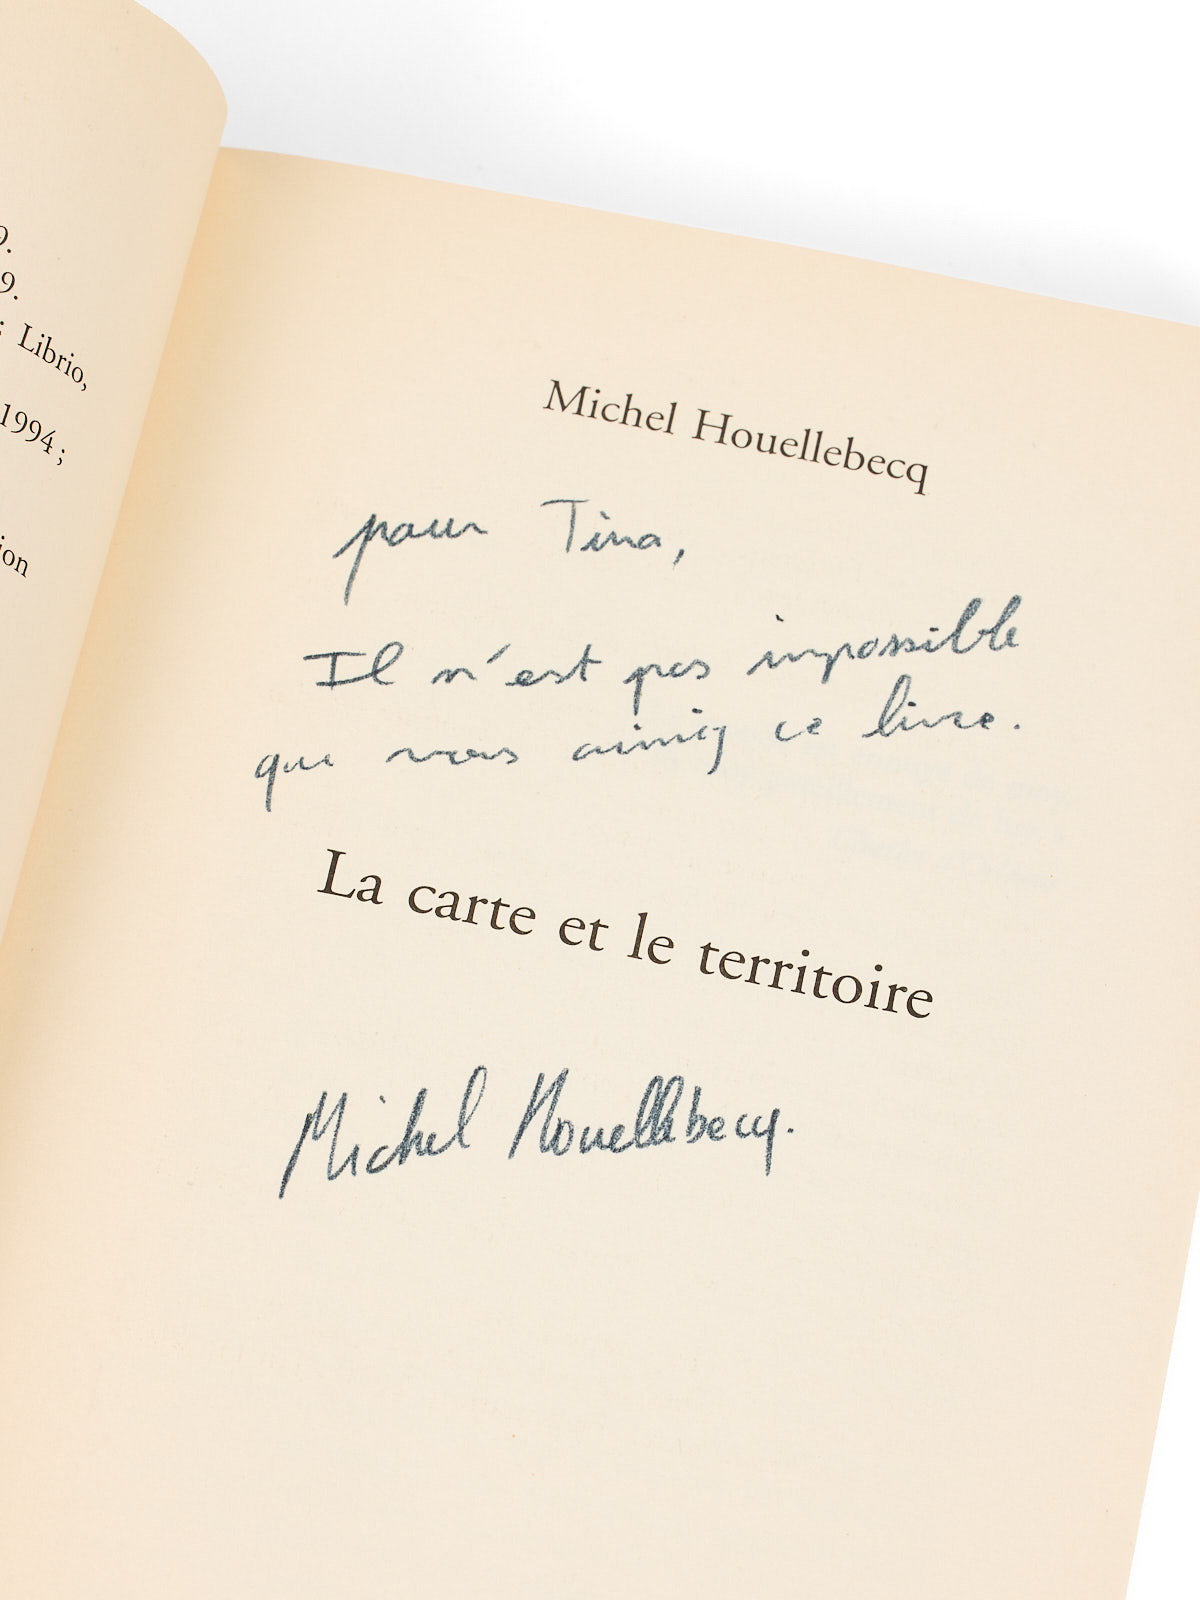 9.
9.
; Librio,
1994 ;
ion
Michel Houellebecq
pour Tina,
Il n'est pas impossible
que vous aimiez ce livre.
La carte et le territoire
Michel Houellebecq.